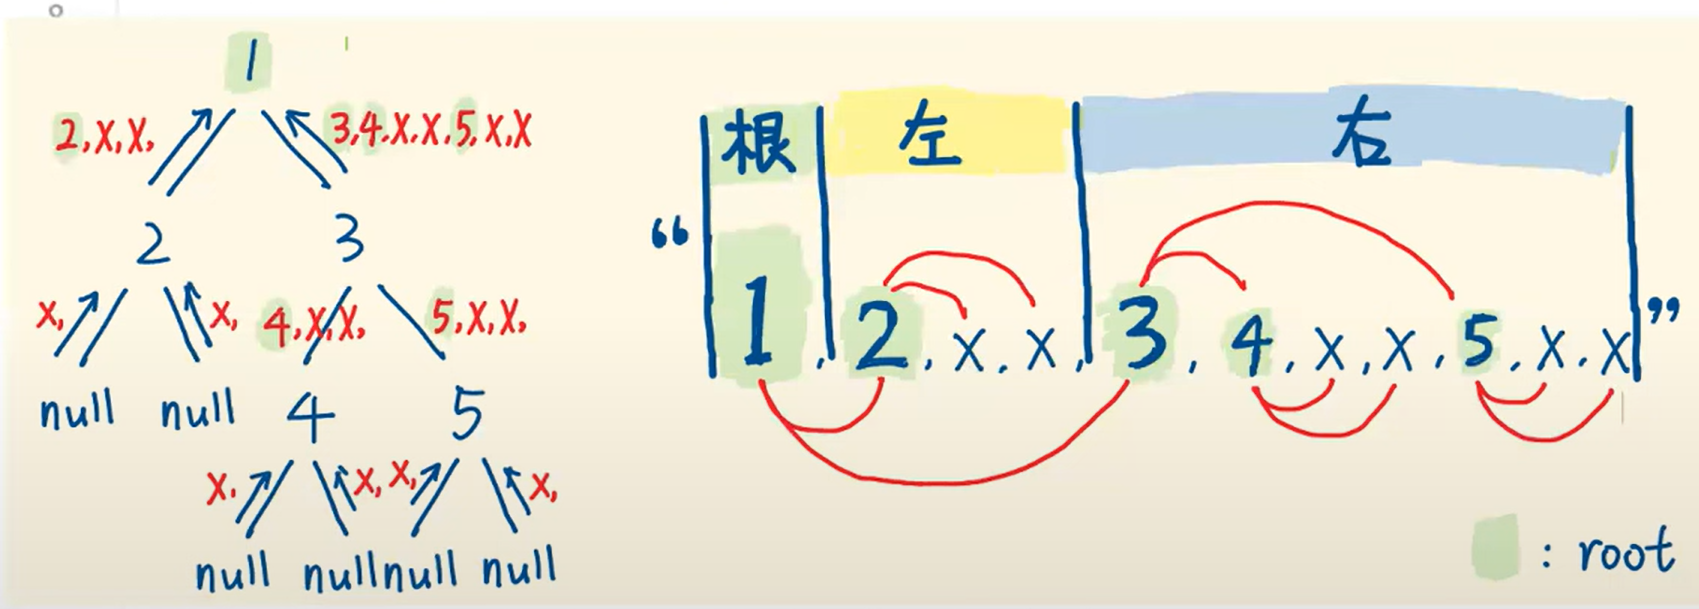 1
2,X,X,
3,4.X.X.5,X,X
2
3
X,
X,
4,X,X,
5,X,X,
null
null
4
5
X,
X,
X,
X,
null
null
null
null
根
左
右
“1,2,X.X,3,4,X,X,5,X.X”
: root